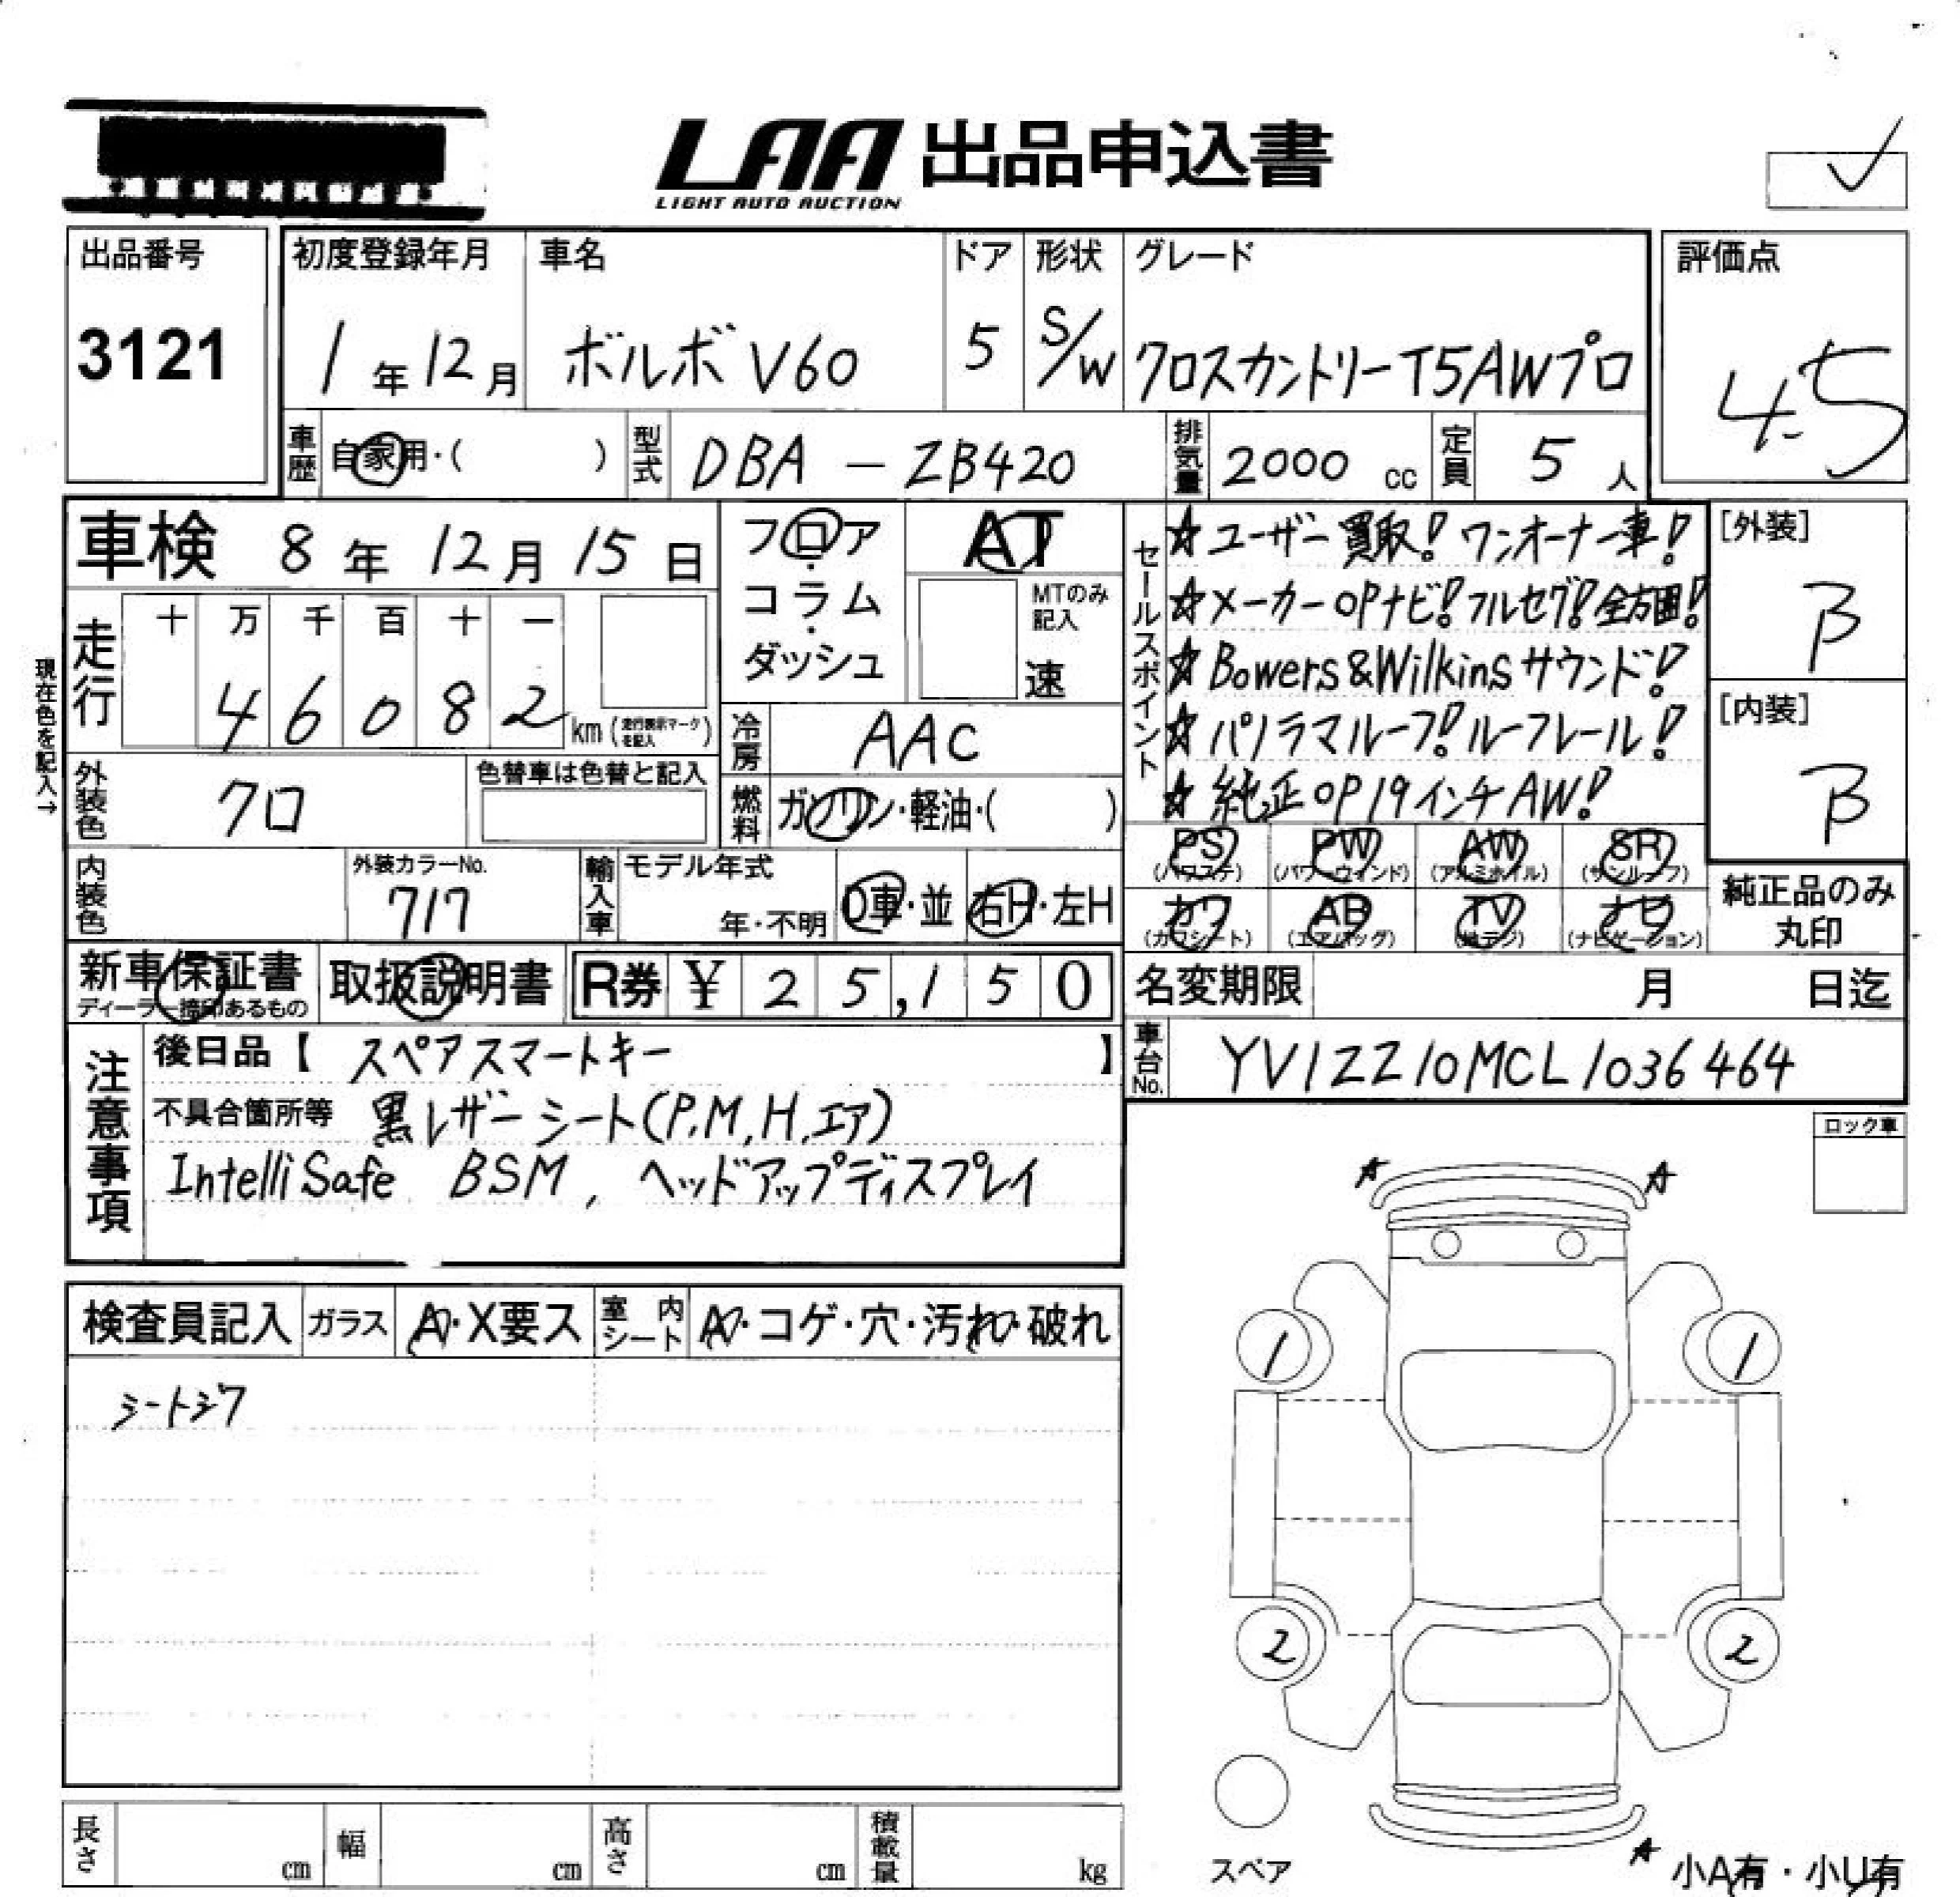 LAA 出品申込書
LIGHT AUTO AUCTION
出品番号 初度登録年月 車名 ドア 形状 グレード 評価点
3121 1年12月 ボルボ V60 5 S/W クロスカントリーT5AWプロ 4.5
車歴 自家用・( ) 型式 DBA - ZB420 排気量 2000 cc 定員 5 人
車検 8年12月15日
フロア・コラム・ダッシュ
AT
MTのみ記入
速
走行 十 万 千 百 十 一
4 6 0 8 2 km (走行表示マークを記入)
現在色を記入→
冷房 AAC
外装色 クロ 色替車は色替と記入
燃料 ガソリン・軽油・( )
内装色 外装カラーNo. 717 輸入車 モデル年式 年・不明 D車・並 右H・左H
セールスポイント
☆ユーザー買取! ワンオーナー車!
☆メーカーOPナビ! フルセグ! 全方囲!
☆Bowers&Wilkinsサウンド!
☆パノラマルーフ! ルーフレール!
☆純正OP19インチAW!
[外装] B
[内装] B
PS (パワステ) PW (パワーウィンド) AW (アルミホイル) SR (サンルーフ)
カワ (カワシート) AB (エアバッグ) TV (地デジ) ナビ (ナビゲーション)
純正品のみ丸印
新車保証書 ディーラー捺印あるもの 取扱説明書 R券 ¥ 25,150
名変期限 月 日迄
車台No. YV1ZZ10MCL1036464
注意事項
後日品【 スペアスマートキー 】
不具合箇所等 黒レザーシート(P,M,H,エア)
IntelliSafe BSM, ヘッドアップディスプレイ
ロック車
検査員記入 ガラス A・X要ス 室内シート A・コゲ・穴・汚れ・破れ
シートシワ
☆ ☆
1 1
2 2
スペア
☆ 小A有・小U有
長さ cm 幅 cm 高さ cm 積載量 kg